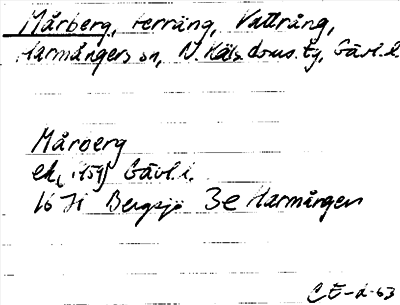 Mårberg, Terräng, Vattrång,
Harmångers sn, N. Häls. doms. tg, Gävl. l.
Mårberg
ek. Gävl. l.
16 H Bergsjö 3e Harmånger
CE-d-63